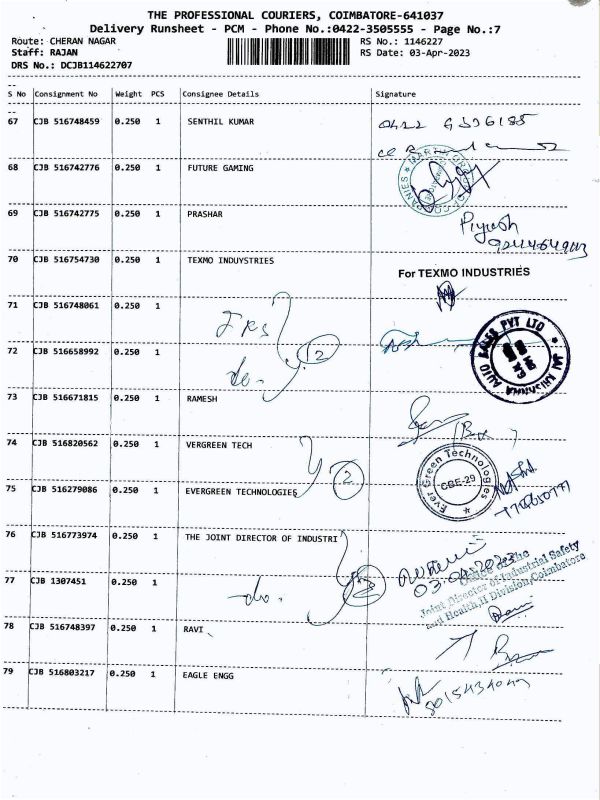 THE PROFESSIONAL COURIERS, COIMBATORE-641037
Delivery Runsheet - PCM - Phone No.:0422-3505555 - Page No.:7
Route: CHERAN NAGAR RS No.: 1146227
Staff: RAJAN RS Date: 03-Apr-2023
DRS No.: DCJB114622707
S No Consignment No Weight PCS Consignee Details Signature
67 CJB 516748459 0.250 1 SENTHIL KUMAR
68 CJB 516742776 0.250 1 FUTURE GAMING
69 CJB 516742775 0.250 1 PRASHAR
Piyush
70 CJB 516754730 0.250 1 TEXMO INDUYSTRIES
For TEXMO INDUSTRIES
71 CJB 516748061 0.250 1
72 CJB 516658992 0.250 1
2
do.
JAI KRISHNAA AUTO SALES PVT LTD
73 CJB 516671815 0.250 1 RAMESH
74 CJB 516820562 0.250 1 VERGREEN TECH
2
Ever Green Technologies
CBE-29
75 CJB 516279086 0.250 1 EVERGREEN TECHNOLOGIES
76 CJB 516773974 0.250 1 THE JOINT DIRECTOR OF INDUSTRI
Office of the
Joint Director of Industrial Safety
and Health, II Division, Coimbatore
77 CJB 1307451 0.250 1
do.
78 CJB 516748397 0.250 1 RAVI
79 CJB 516803217 0.250 1 EAGLE ENGG